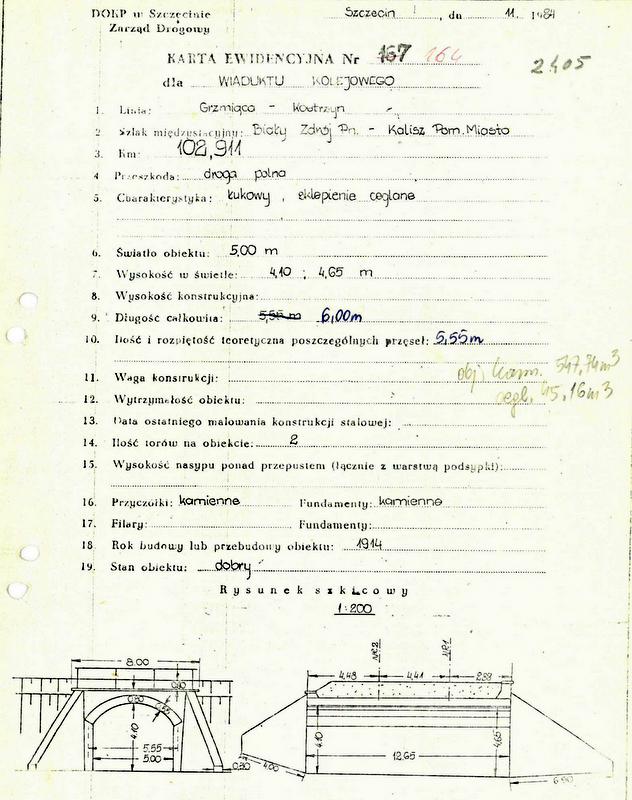 DOKP w Szczecinie
Zarząd Drogowy
Szczecin, dn. 11. 1984
KARTA EWIDENCYJNA Nr 167 164
2405
dla WIADUKTU KOLEJOWEGO
1. Linia: Grzmiąca - Kostrzyn
2. Szlak międzystacyjny: Biały Zdrój Pn. - Kalisz Pom. Miasto
3. Km: 102,911
4. Przeszkoda: droga polna
5. Charakterystyka: łukowy, sklepienie ceglane
6. Światło obiektu: 5,00 m
7. Wysokość w świetle: 4,10 ; 4,65 m
8. Wysokość konstrukcyjna:
9. Długość całkowita: 5,55 m 6,00m
10. Ilość i rozpiętość teoretyczna poszczególnych przęseł: 5,55m
obj. kam. 547,74m3
11. Waga konstrukcji:
cegl. 45,16m3
12. Wytrzymałość obiektu:
13. Data ostatniego malowania konstrukcji stalowej:
14. Ilość torów na obiekcie: 2
15. Wysokość nasypu ponad przepustem (łącznie z warstwą podsypki):
16. Przyczółki: kamienne Fundamenty: kamienne
17. Filary: Fundamenty:
18. Rok budowy lub przebudowy obiektu: 1914
19. Stan obiektu: dobry
Rysunek szkicowy
1:200
8.00
4,48 4,41
4.10
5.55
5.00
4.10
4,65
12,65
0,80 4,00
6.90